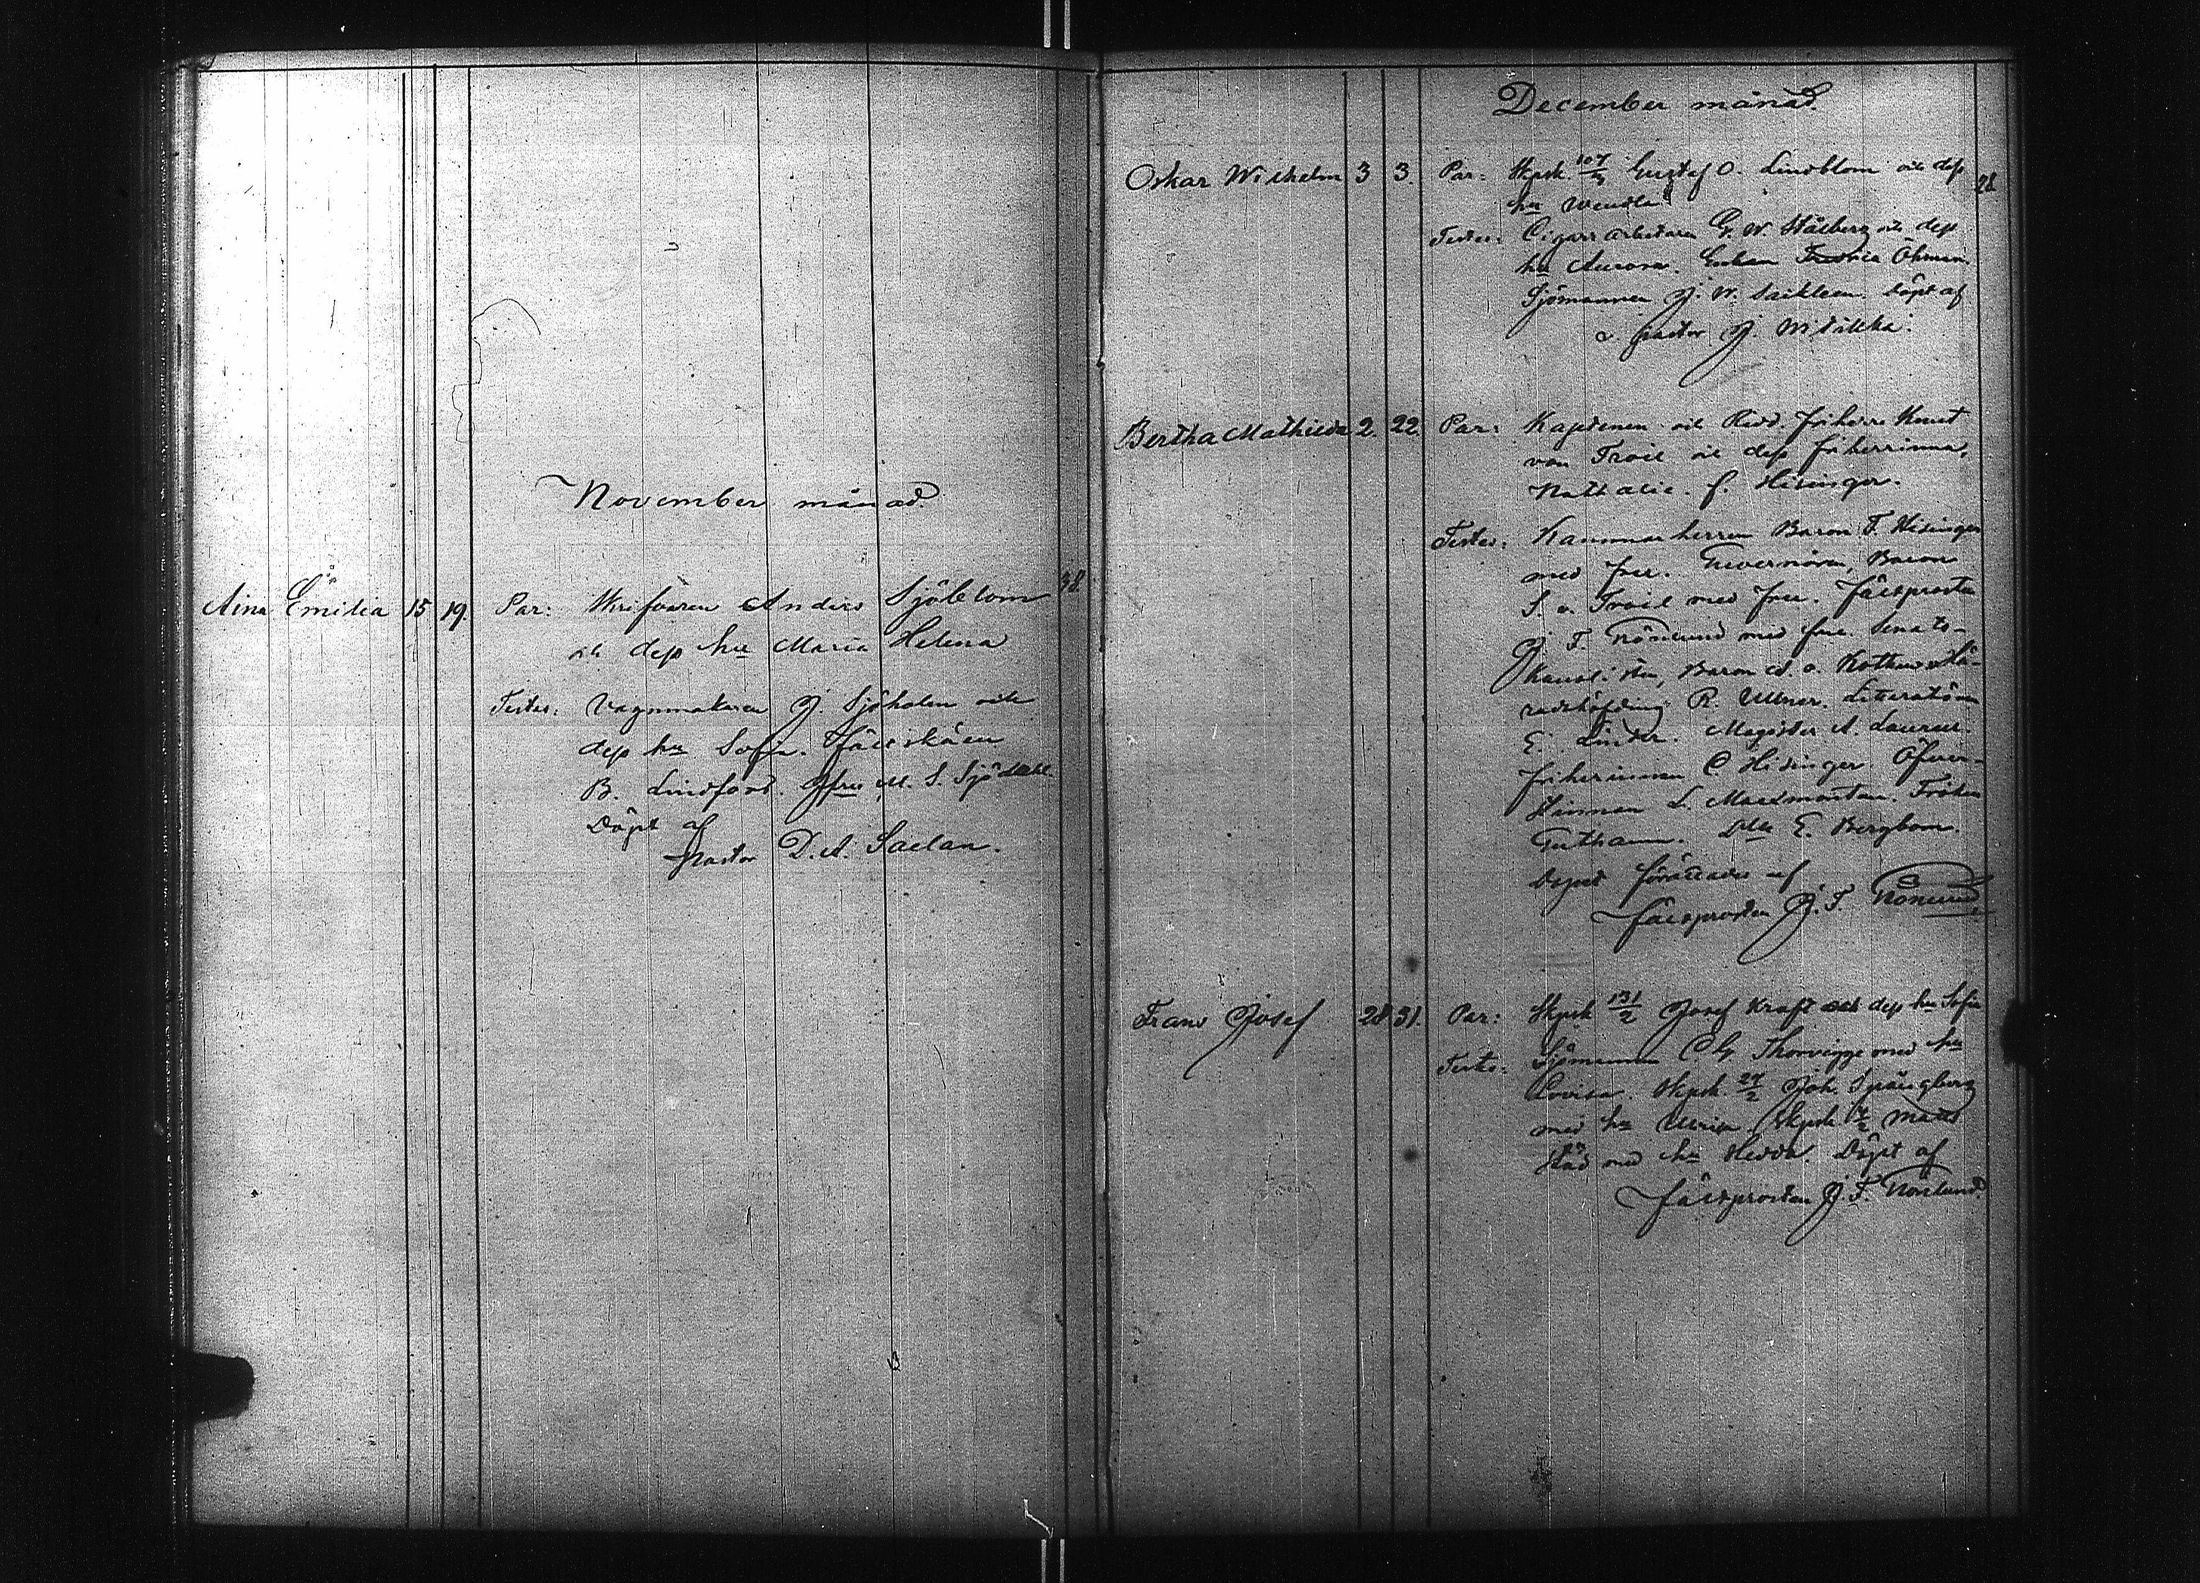 November månad.
Aina Emilia 15 19. Par: Anders Sjöblom 38
och dess hu Maria Helena
Testes: Vagnmakaren J. Sjöholm och
dess hu Sofia.
B. Lindfors. Jfru M. S. Sjödahl.
Döpt af
Pastor D. A. Saelan.
December månad.
Oskar Wilhelm 3 3. Par: Skpsk 107/2 Gustaf O. Lindblom och dess 28
hu Wendla
Testes: Cigarrarbetaren G. W. Stålberg och dess
hu Aurora. Enkan Öhman.
Sjömannen J. W. Döpt af
v. pastor J. Widikka.
Bertha Mathilda 2. 22. Par: Kaptenen och Ridd. friherre Knut
von Troil och dess friherrinna,
Nathalie. f. Hisinger.
Testes: Kammarherren Baron F. Hisinger
med fru. Guvernören, Baron
S. v. Troil med fru. Fältprosten
J. F. Rönlund med fru. Senats-
kanslisten, Baron A. v. Kothen. Hä-
radshöfding R. Ullner. Literatören
E. Linder. Magister A. Laurell.
friherrinnan C. Hisinger. Öfver-
stinnan L. Maexmontan. Fröken
E. Bergbom.
Dopet förrättades af
fältprosten J. F. Rönlund
Frans Josef 28 31. Par: Skpsk 131/2 Josef Kraft och dess hu Sofia
Testes: Sjömannen C. G. med hu
Lovisa. Skpsk. 27/2 Joh. Spångberg
med hu Ulrika. Skpsk Matts
med hu Hedda. Döpt af
fältprosten J. F. Rönlund.